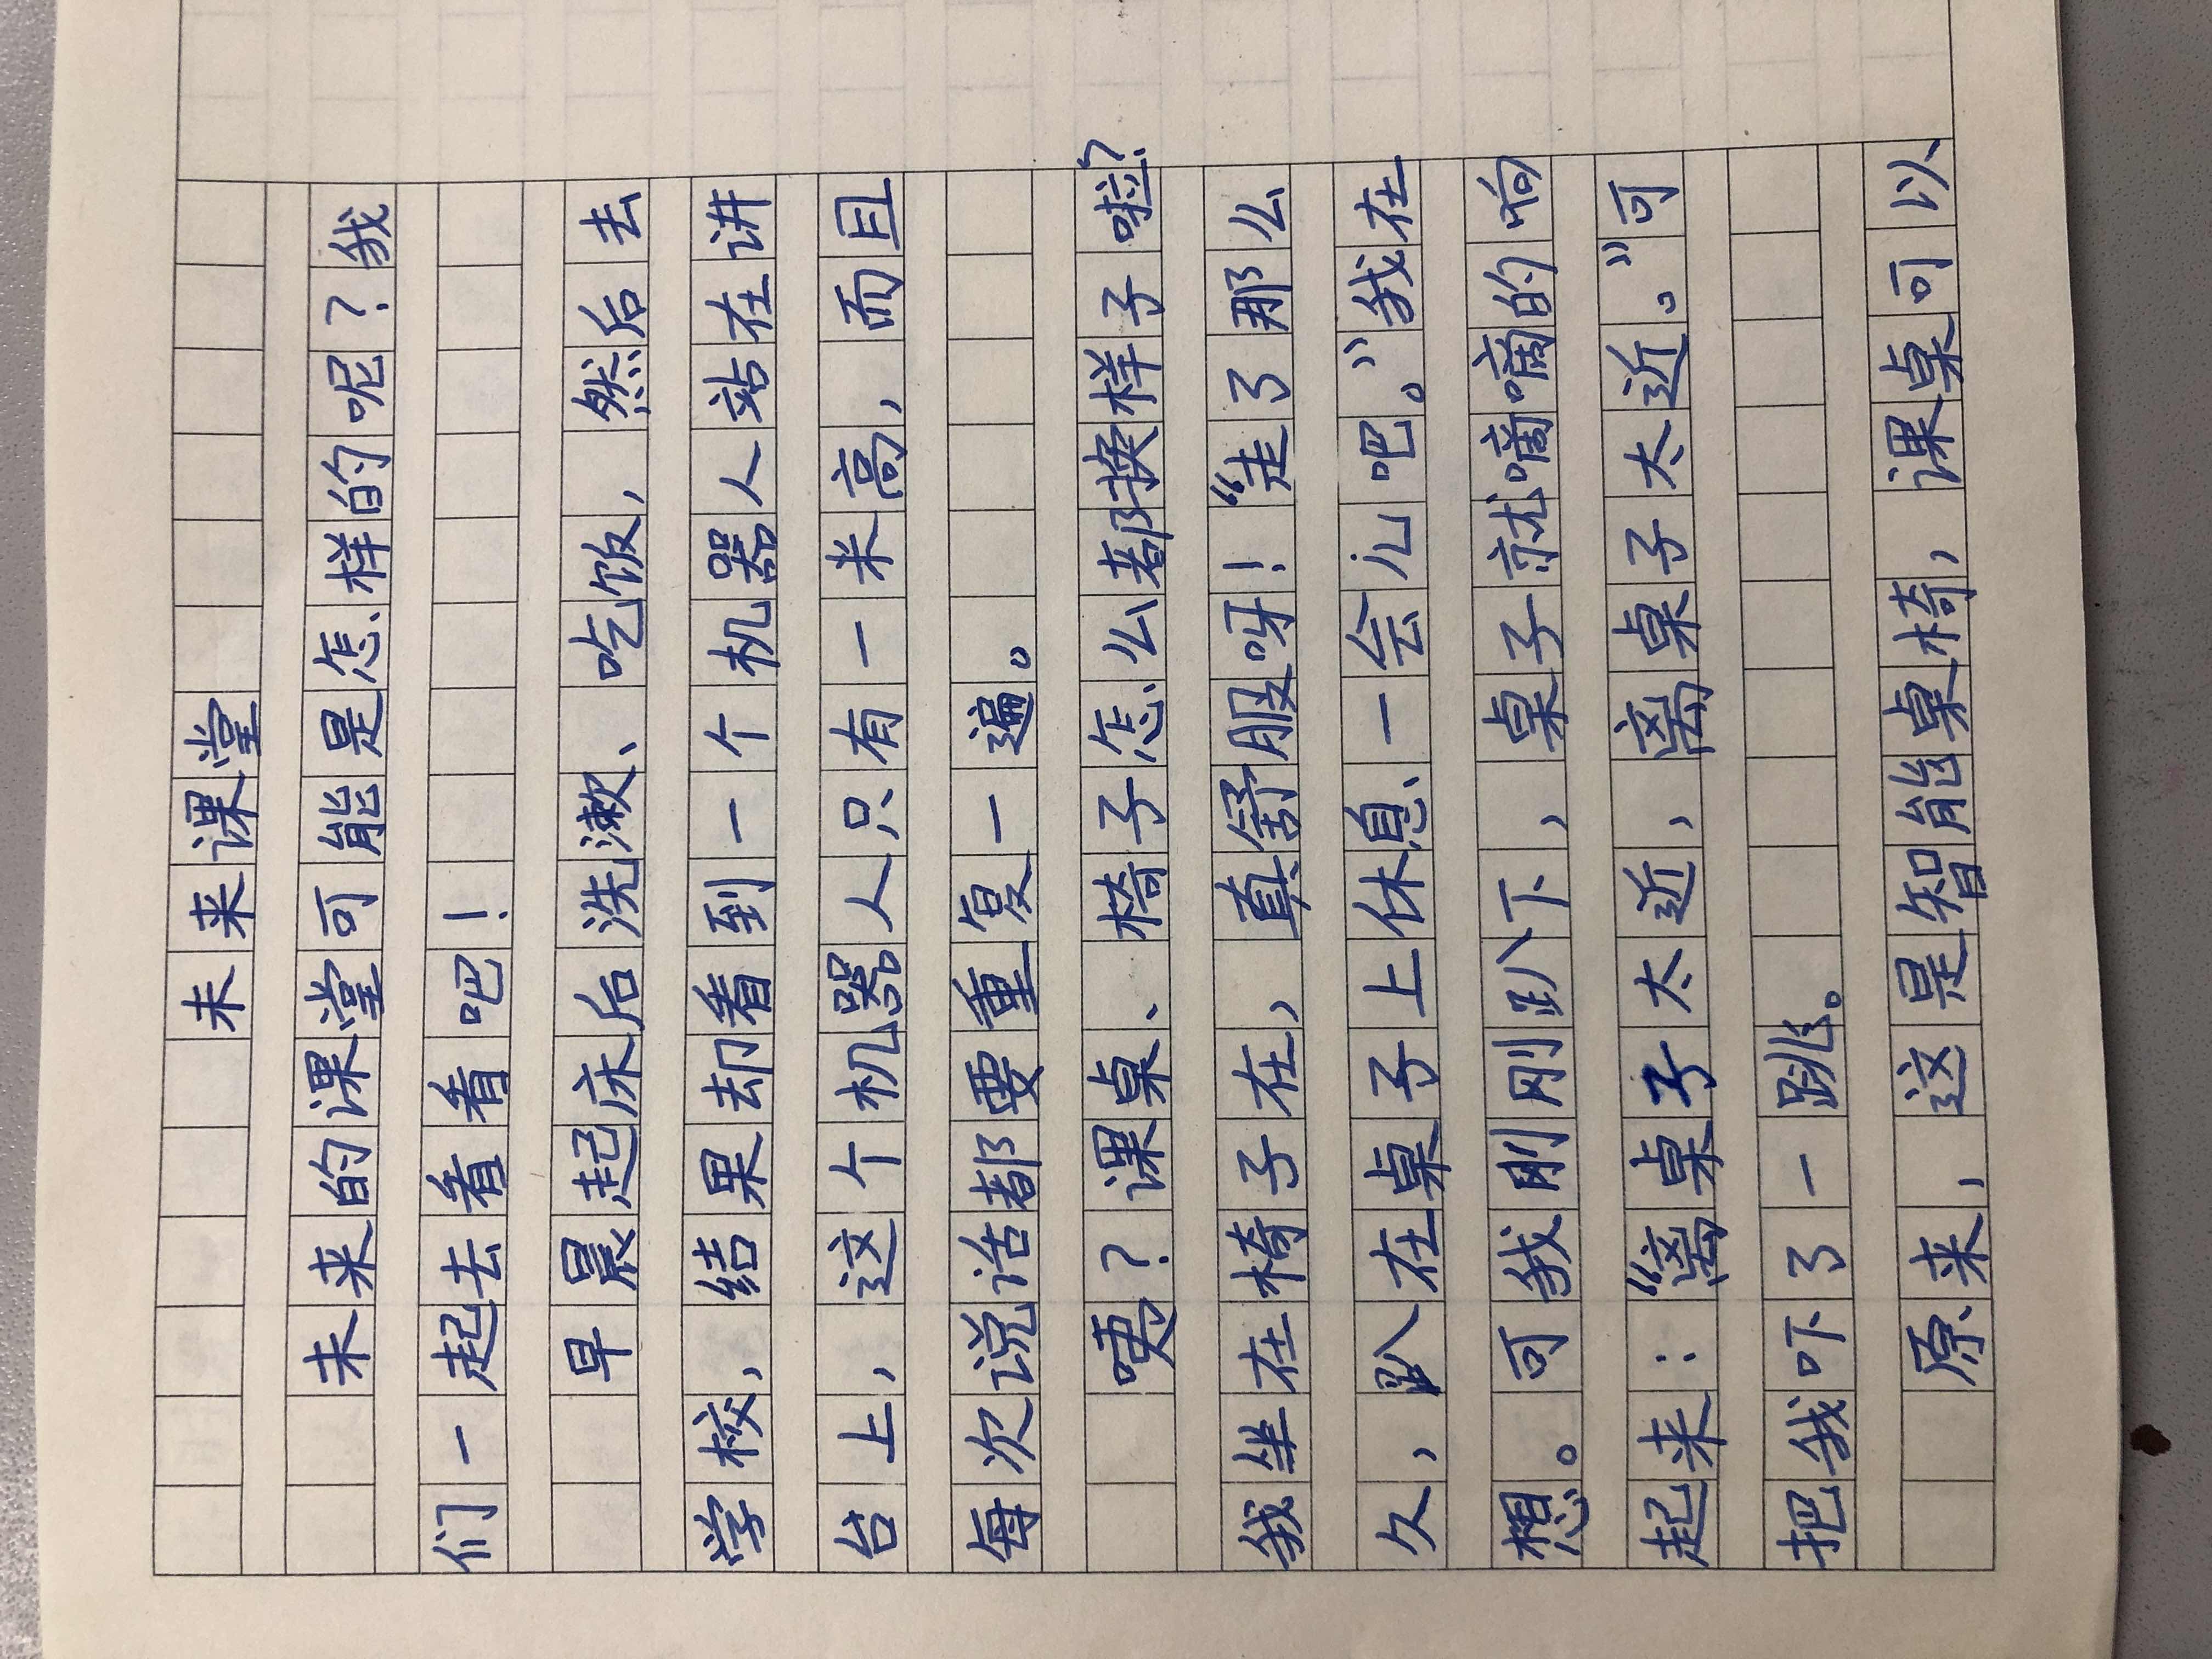 未来课堂
未来的课堂可能是怎样的呢？我
们一起去看看吧！
早晨起床后洗漱、吃饭，然后去
学校，结果却看到一个机器人站在讲
台上，这个机器人只有一米高，而且
每次说话都要重复一遍。
咦？课桌、椅子怎么都换样子啦？
我坐在椅子在，真舒服呀！“走了那么
久，趴在桌子上休息一会儿吧。”我在
想。可我刚刚趴下，桌子就嘀嘀的响
起来：“离桌子太近，离桌子太近。”可
把我吓了一跳。
原来，这是智能桌椅，课桌可以